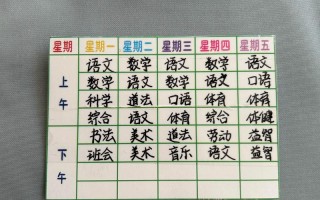 星期 星期一 星期二 星期三 星期四 星期五
上午 语文 数学 语文 数学 语文
数学 语文 数学 语文 口语
科学 道法 口语 体育 体育
综合 语文 体育 综合 体健
下午 书法 美术 道法 劳动 益智
班会 美术 音乐 语文 益智